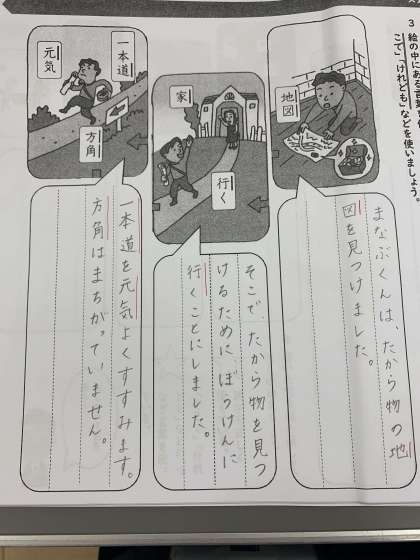 3 絵の中にある言葉を使
こで」「けれども」などを使いましょう。
地図
まなぶくんは、たから物の地
図を見つけました。
家
行く
そこで、たから物を見つ
けるためにぼうけんに
行くことにしました。
一本道
元気
方角
一本道を元気よくすすみます。
方角はまちがっていません。